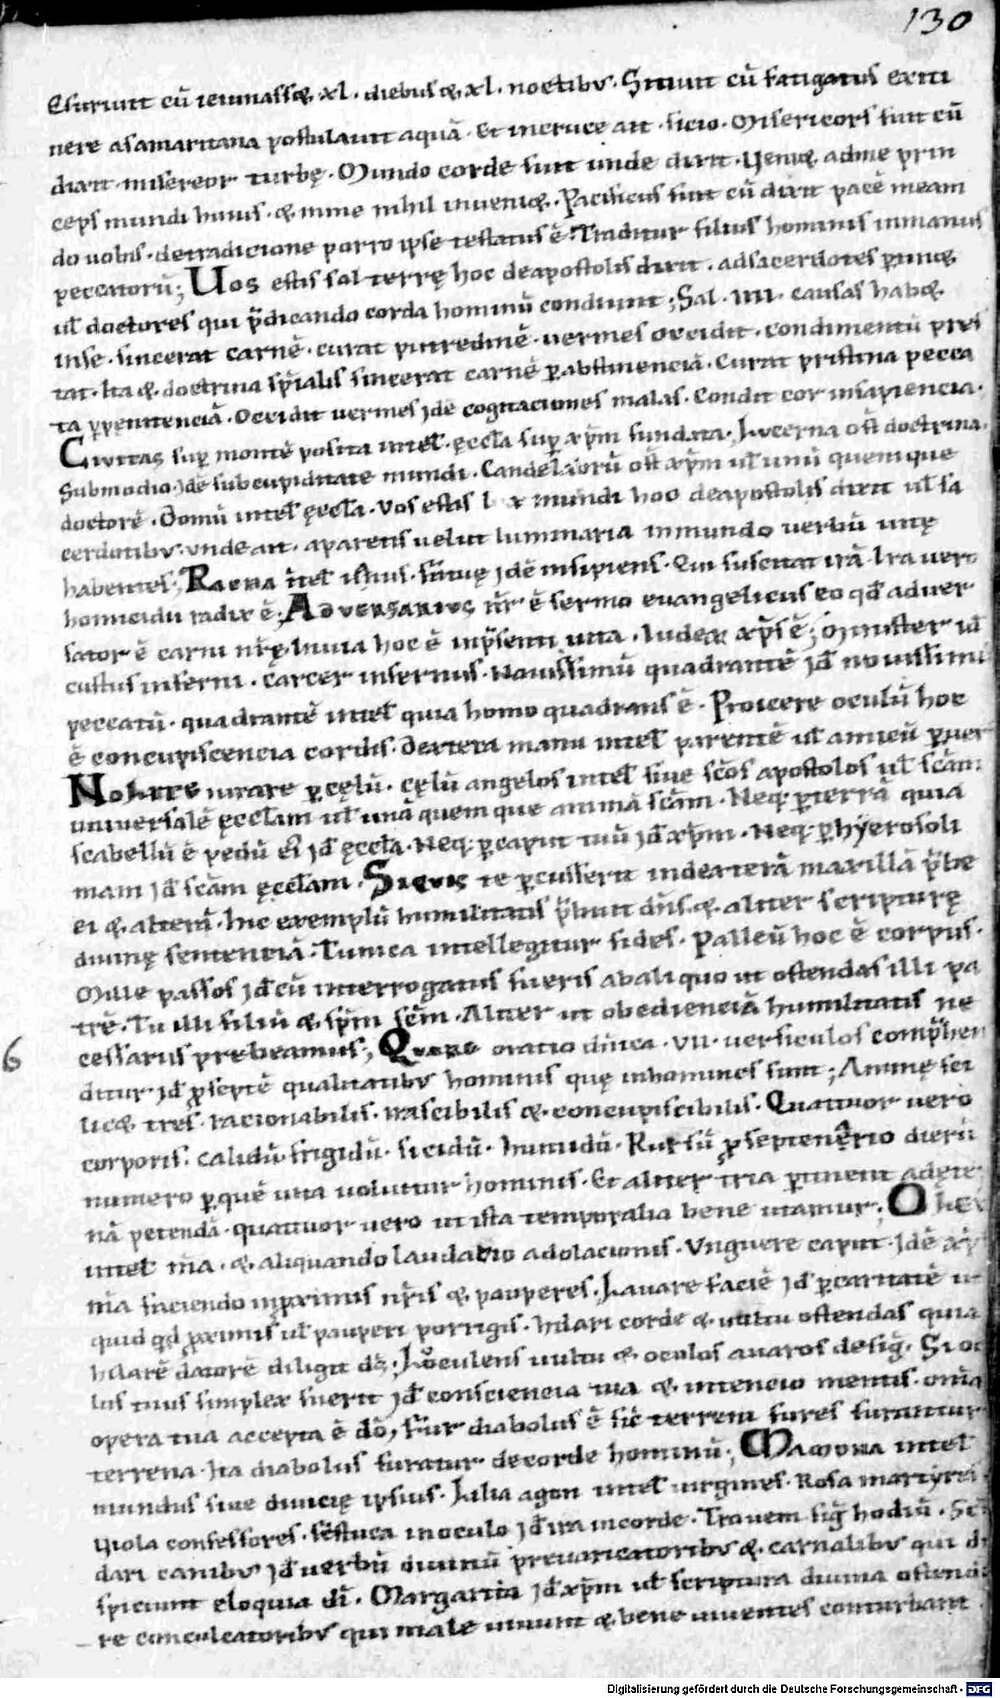 130
Esuriuit cū ieiunass&, xl. diebus &, xl. noctibus. Sitiuit cū fatigatus ex iti
nere a samaritana postulauit aquā. Et in cruce ait. sicio. Misericors fuit cū
dixit. misereor turbę. Mundo corde fuit unde dixit. Uenit, ad me prin
ceps mundi huius. & in me nihil inueni&. Pacificus fuit cū dixit pacē meam
do uobis. de tradicione porro ipse testatus ē. Traditur filius hominis in manus
peccatorū; Uos estis sal terrę hoc de apostolis dixit. ad sacerdotes ptin&,
ul doctores qui pdicando corda hominū condiunt; Sal. IIII. causas hab&,
in se. sincerat carnē. curat putredinē. uermes occidit. condimentū pres
tat. Ita &, doctrina spialis sincerat carnē p abstinenciā. Curat pristina pecca
ta p penitenciā. Occidit uermes idē cogitaciones malas. Condit cor insapiencia.
Ciuitas sup montē posita intel. ęccla sup xpm fundata. Lucerna ost doctrina.
Submodio. idē sub cupiditate mundi. Candelabrū ost xpm ul unū quemque
doctorē. Domū intel ęccla. Uos estis l x mundi hoc de apostolis dixit ul sa
cerdotibus. unde ait. aparetis uelut luminaria in mundo uerbū uitę
habentes; Racha intel istius. fatuę idē insipiens. Qui suscitat irā. Ira uero
homicidii radix ē; Aduersarius nr ē sermo euangelicus eo qd aduer
sator ē carni nrę. In uia hoc ē in psenti uita. Iudex xps ē; Minister id
custus inferni. Carcer infernus. Nouissimū quadrantē id nouissimū
peccatū. quadrantē intel quia homo quadrans ē. Proicere oculū hoc
ē concupiscencia cordis. Dextera manu intel parentē ul amicū puer
Nolite iurare p cęlū. Cęlū angelos intel siue scos apostolos ul scam
uniuersalē ęcclam ul unā quemque animā scam. Neq p terrā quia
scabellū ē pedū ei id ęccla. Neq p caput tuū id xpm. Neq p hyerosoli
mam id scam ęcclam. Siquis te pcusserit in dexterā maxillā pbe
ei &, alterā. Hic exemplū humilitatis pbuit dns. &, aliter scripturę
diuinę sentenciā. Tunica intellegitur fides. Palleū hoc ē corpus.
Mille passos id cū interrogatus fueris ab aliquo ut ostendas illi pa
trē. Tu illi filiū &, spm scm. Aliter ut obedienciā humilitatis ne
cessariis prebeamus; Quare oratio dnica. VII. uersiculos comphen
ditur id p septē qualitatibus hominis quę in homines sunt; Animę sci
lic&, tres. racionabilis. irascibilis &, concupiscibilis. Quattuor uero
corporis. calidū. frigidū. siccidū. humidū. Rursū p septenario dierū
numero p quē uita uoluitur hominis. Et aliter tria ptinent ad ęter
nā petendā. quattuor uero ut ista temporalia bene utamur; Oleū
intel mia. &, aliquando laudatio adolacionis. Unguere caput. idē xpm
mia faciendo in pximis nris &, pauperes. Lauare faciē id p caritatē ut
quid qd pximis ul pauperi porrigis. hilari corde &, uultu ostendas quia
hilarē datorē diligit ds; Luculens uultu &, oculos auaros desig. Si ocu
lus tuus simplex fuerit id consciencia tua &, intencio mentis. omia
opera tua accepta ē do; Fur diabolus ē sic terreni fures furantur
terrena. Ita diabolus furatur de corde hominū; Mamona intel
mundus siue diuicię ipsius. Lilia agri intel uirgines. Rosa martyres.
Uiola confessores. Festuca in oculo id ira in corde. Trauem sig hodiū. Sc
dari canibus id uerbū diuinū preuaricatoribus &, carnalibus qui di
spiciunt eloquia di. Margarita id xpm ul scriptura diuina ostendi
6
re conculcatoribus qui male uiuunt &, bene uiuentes conturbant.
Digitalisierung gefördert durch die Deutsche Forschungsgemeinschaft - DFG